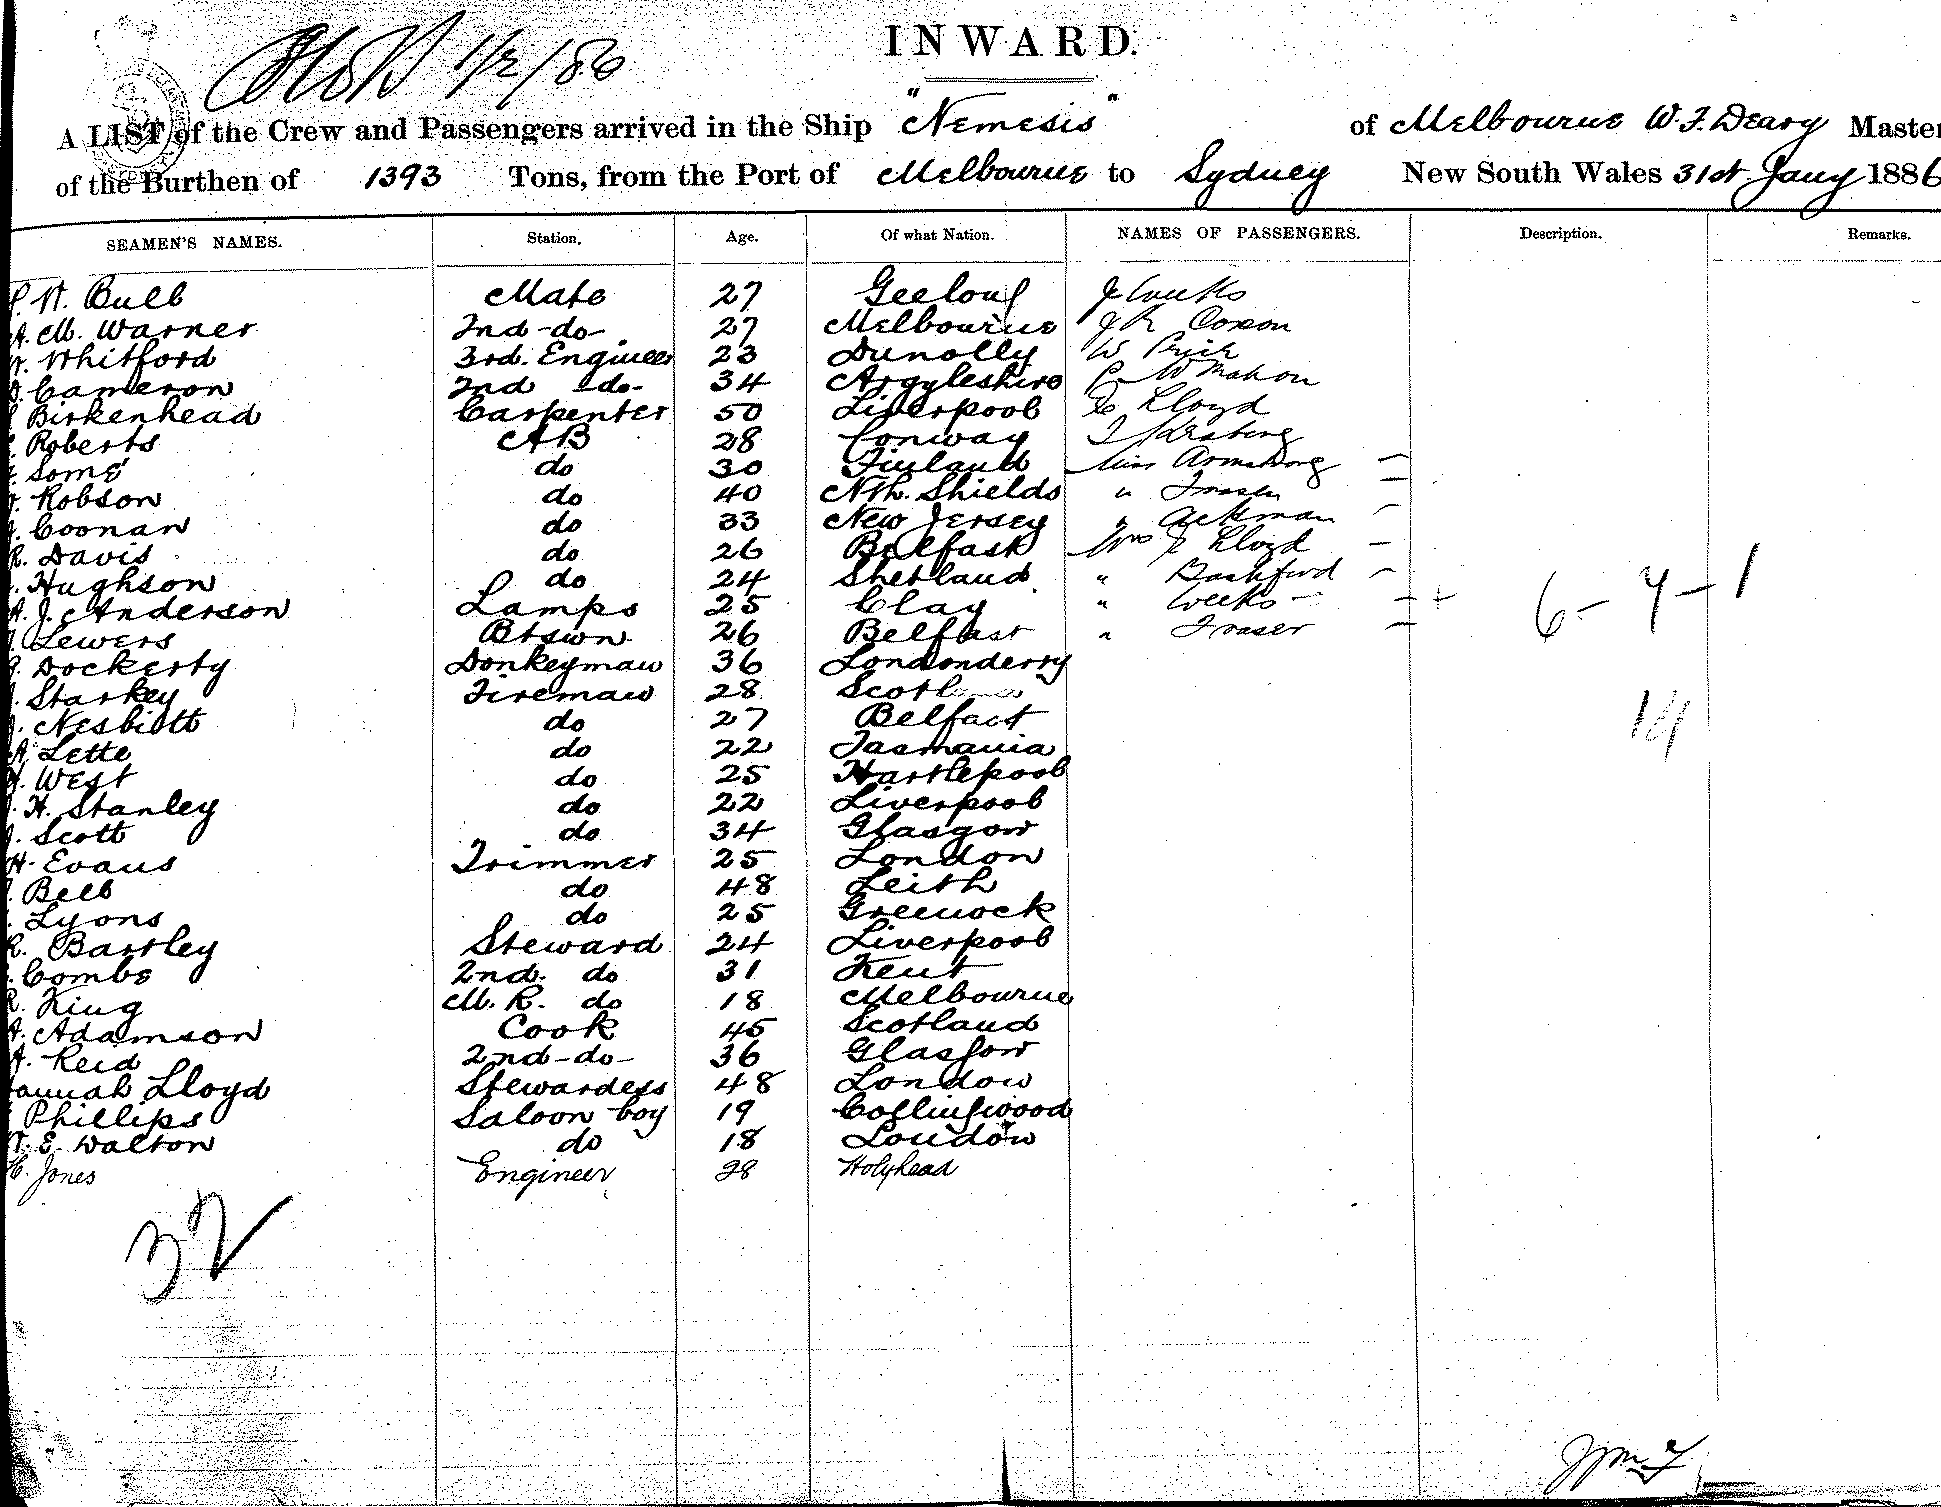 1/2/86
INWARD.
A LIST of the Crew and Passengers arrived in the Ship "Nemesis" of Melbourne W. F. Deary Master
of the Burthen of 1393 Tons, from the Port of Melbourne to Sydney New South Wales 31st Jany 1886
SEAMEN'S NAMES. Station. Age. Of what Nation. NAMES OF PASSENGERS. Description. Remarks.
Bull Mate 27 Geelong J Weeks
A. M. Warner 2nd -do- 27 Melbourne J R Coxon
Whitford 3rd. Engineer 23 Dunolly W Price
Cameron 2nd -do- 34 Argyleshire McMahon
Birkenhead Carpenter 50 Liverpool Lloyd
Roberts AB 28 Conway
Some do 30 Finland Miss Armstrong —
Robson do 40 Nth. Shields " Fraser —
Coonan do 33 New Jersey " Ackman —
R. Davis do 26 Belfast Mrs Lloyd —
Hughson do 24 Shetland " Bashford —
A. J. Anderson Lamps 25 Clay " Weeks — + 6 - 7 - 1
Lewers Btswn 26 Belfast " Fraser —
Dockerty Donkeyman 36 Londonderry
Starkey Fireman 28 Scotland 14
Nesbitt do 27 Belfast
A. Lette do 22 Tasmania
West do 25 Hartlepool
H. Stanley do 22 Liverpool
Scott do 34 Glasgow
H. Evans Trimmer 25 London
Bell do 48 Leith
Lyons do 25 Greenock
R. Bartley Steward 24 Liverpool
Combs 2nd. do 31 Kent
R. King M. R. do 18 Melbourne
A. Adamson Cook 45 Scotland
A. Reid 2nd -do- 36 Glasgow
Hannah Lloyd Stewardess 48 London
Phillips Saloon boy 19 Collingwood
W. E. Walton do 18 London
Jones Engineer 28 Holyhead
32